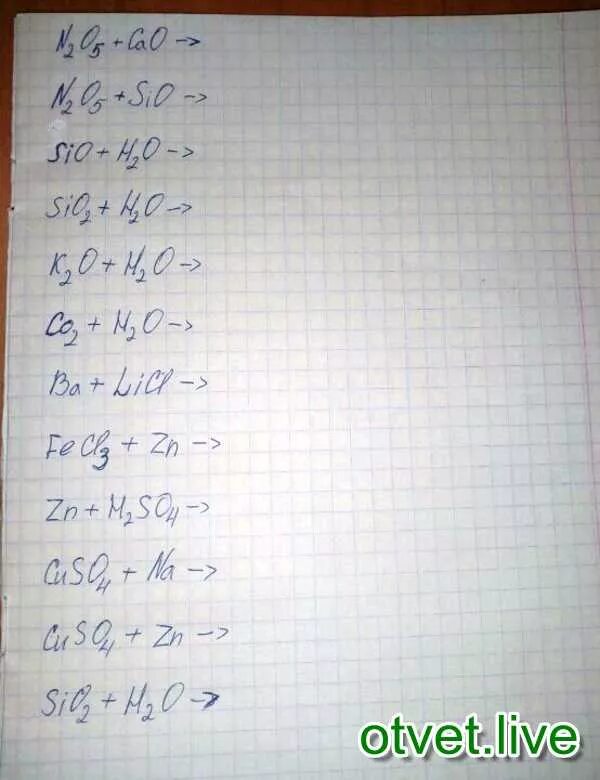 N₂O₅ + CaO →
N₂O₅ + SiO →
SiO + H₂O →
SiO₂ + H₂O →
K₂O + H₂O →
Co₂ + H₂O →
Ba + LiCl →
FeCl₃ + Zn →
Zn + H₂SO₄ →
CuSO₄ + Na →
CuSO₄ + Zn →
SiO₂ + H₂O →
otvet.live